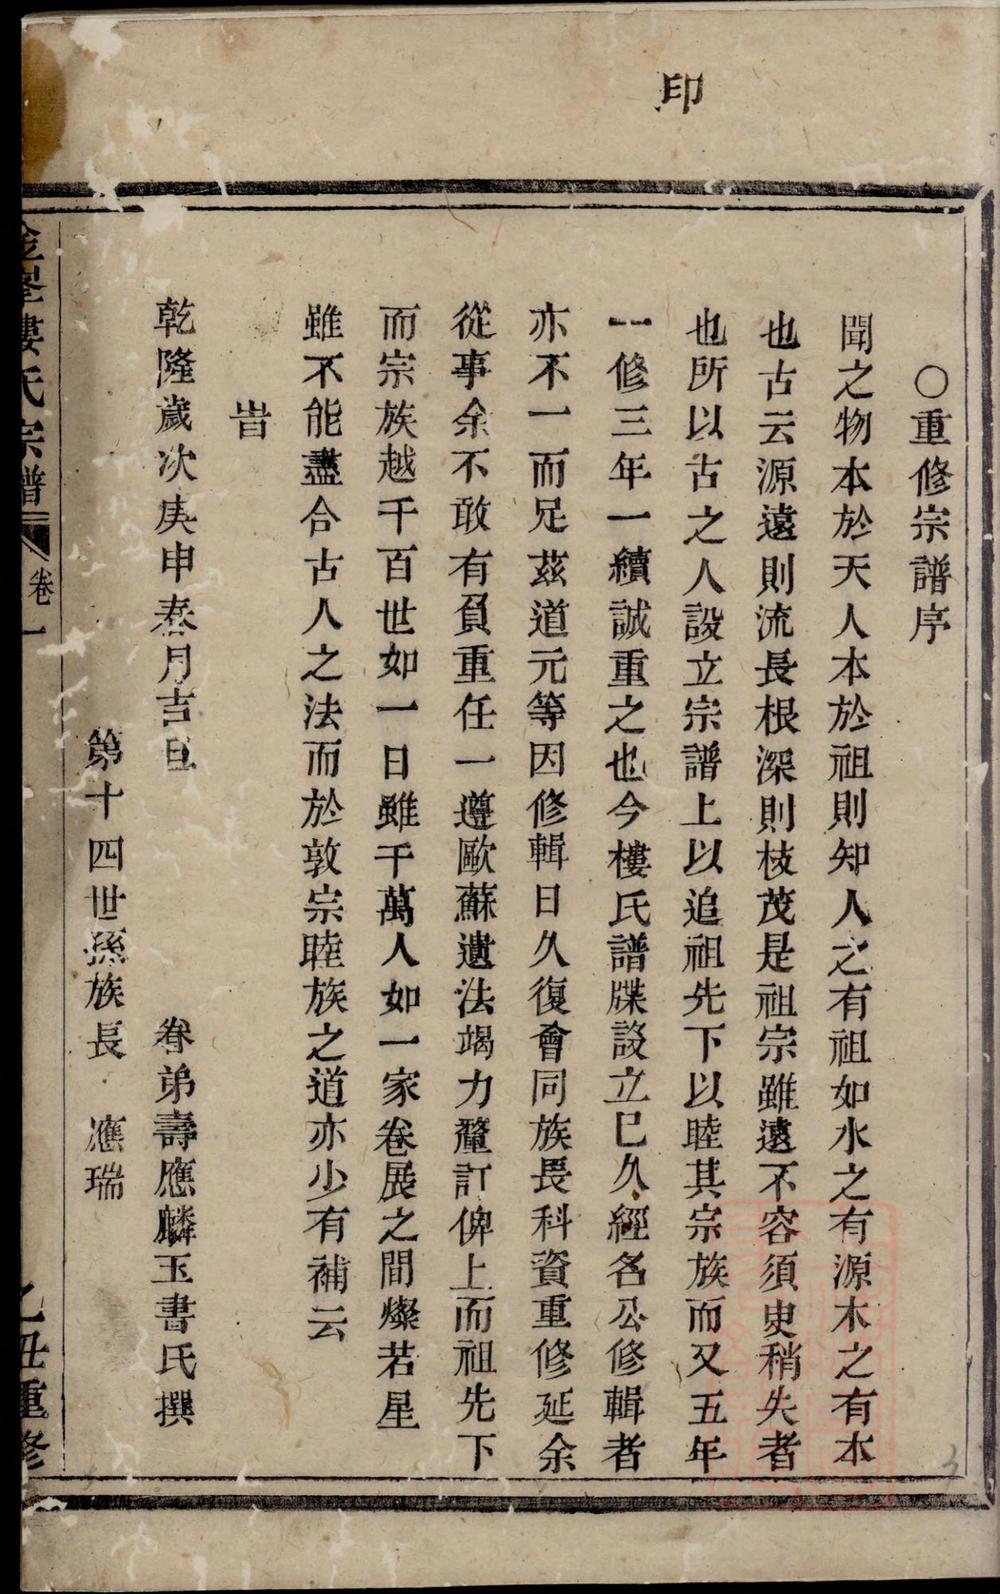 印
○重修宗譜序
聞之物本於天人本於祖則知人之有祖如水之有源木之有本
也古云源遠則流長根深則枝茂是祖宗雖遠不容須史稍失者
也所以古之人設立宗譜上以追祖先下以睦其宗族而又五年
一修三年一續誠重之也今樓氏譜牒設立巳久經名公修輯者
亦不一而足茲道元等因修輯日久復會同族長科資重修延余
從事余不敢有負重任一遵歐蘇遺法竭力釐訂俾上而祖先下
而宗族越千百世如一日雖千萬人如一家卷展之間燦若星
雖不能盡合古人之法而於敦宗睦族之道亦少有補云
旹
乾隆歲次庚申春月吉旦　眷弟壽應麟玉書氏撰
第十四世孫族長　應瑞
樓氏宗譜　卷一　乙丑重修